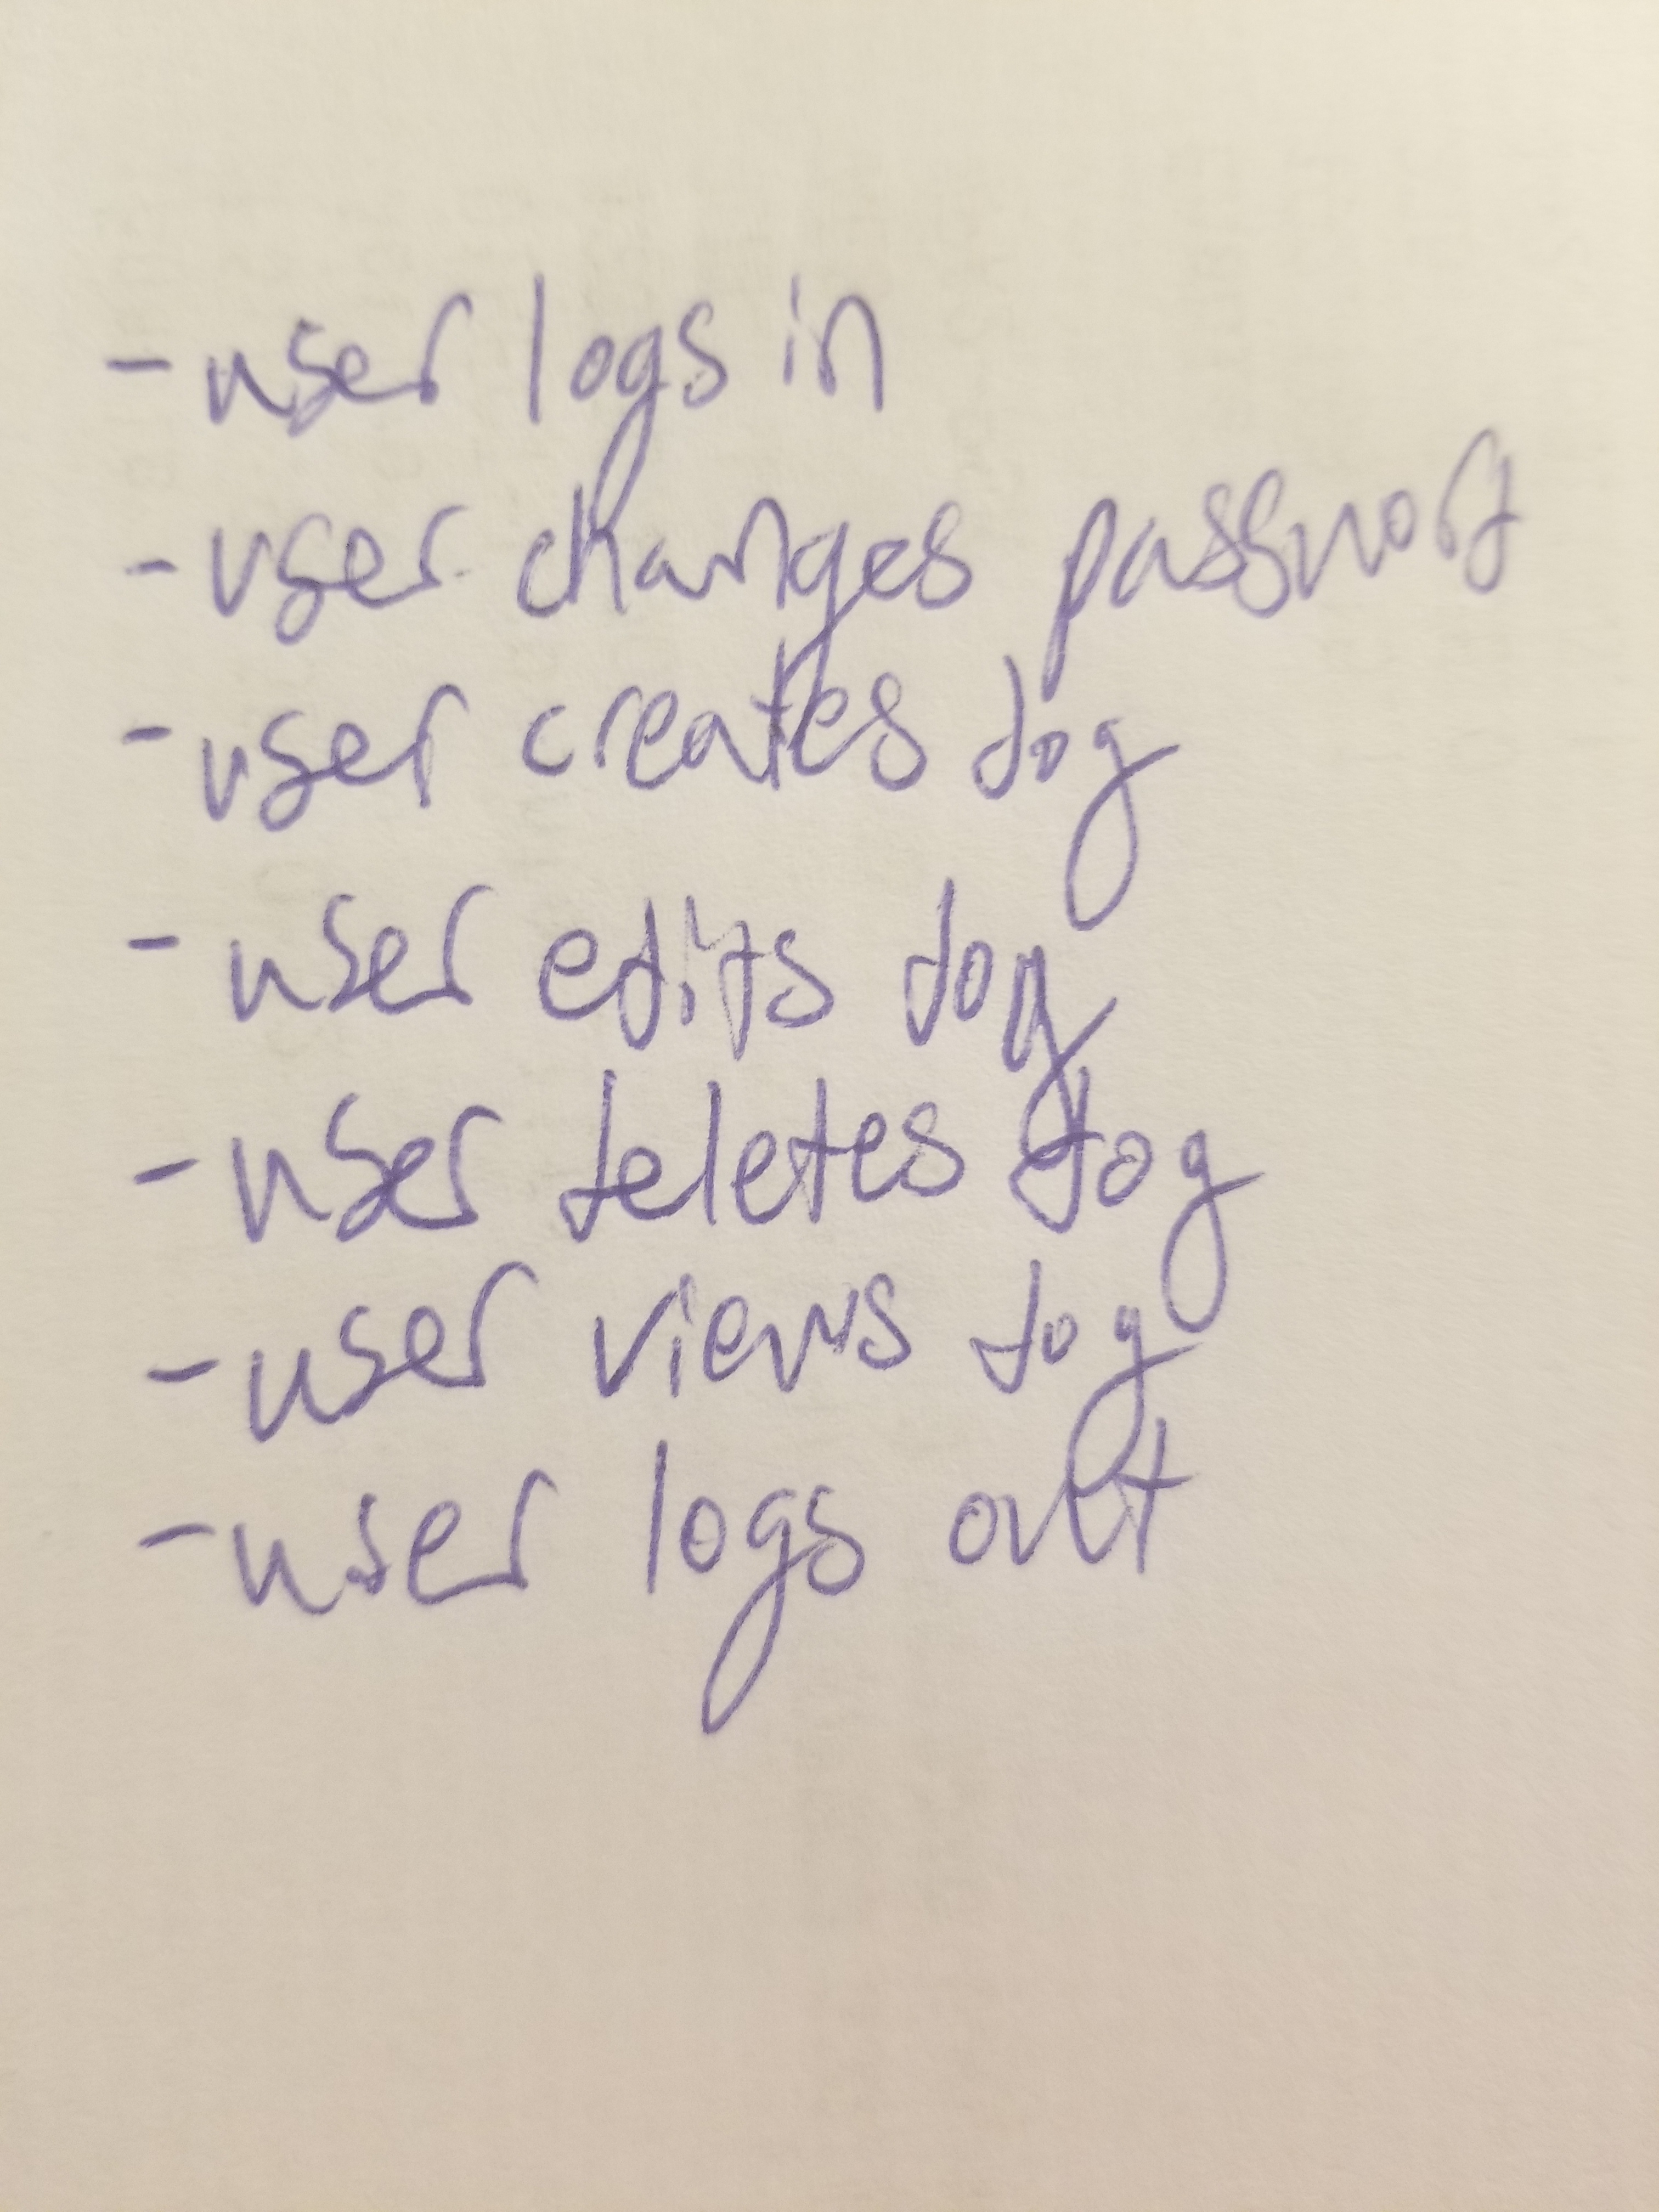 - user logs in
- user changes password
- user creates dog
- user edits dog
- user deletes dog
- user views dog
- user logs out